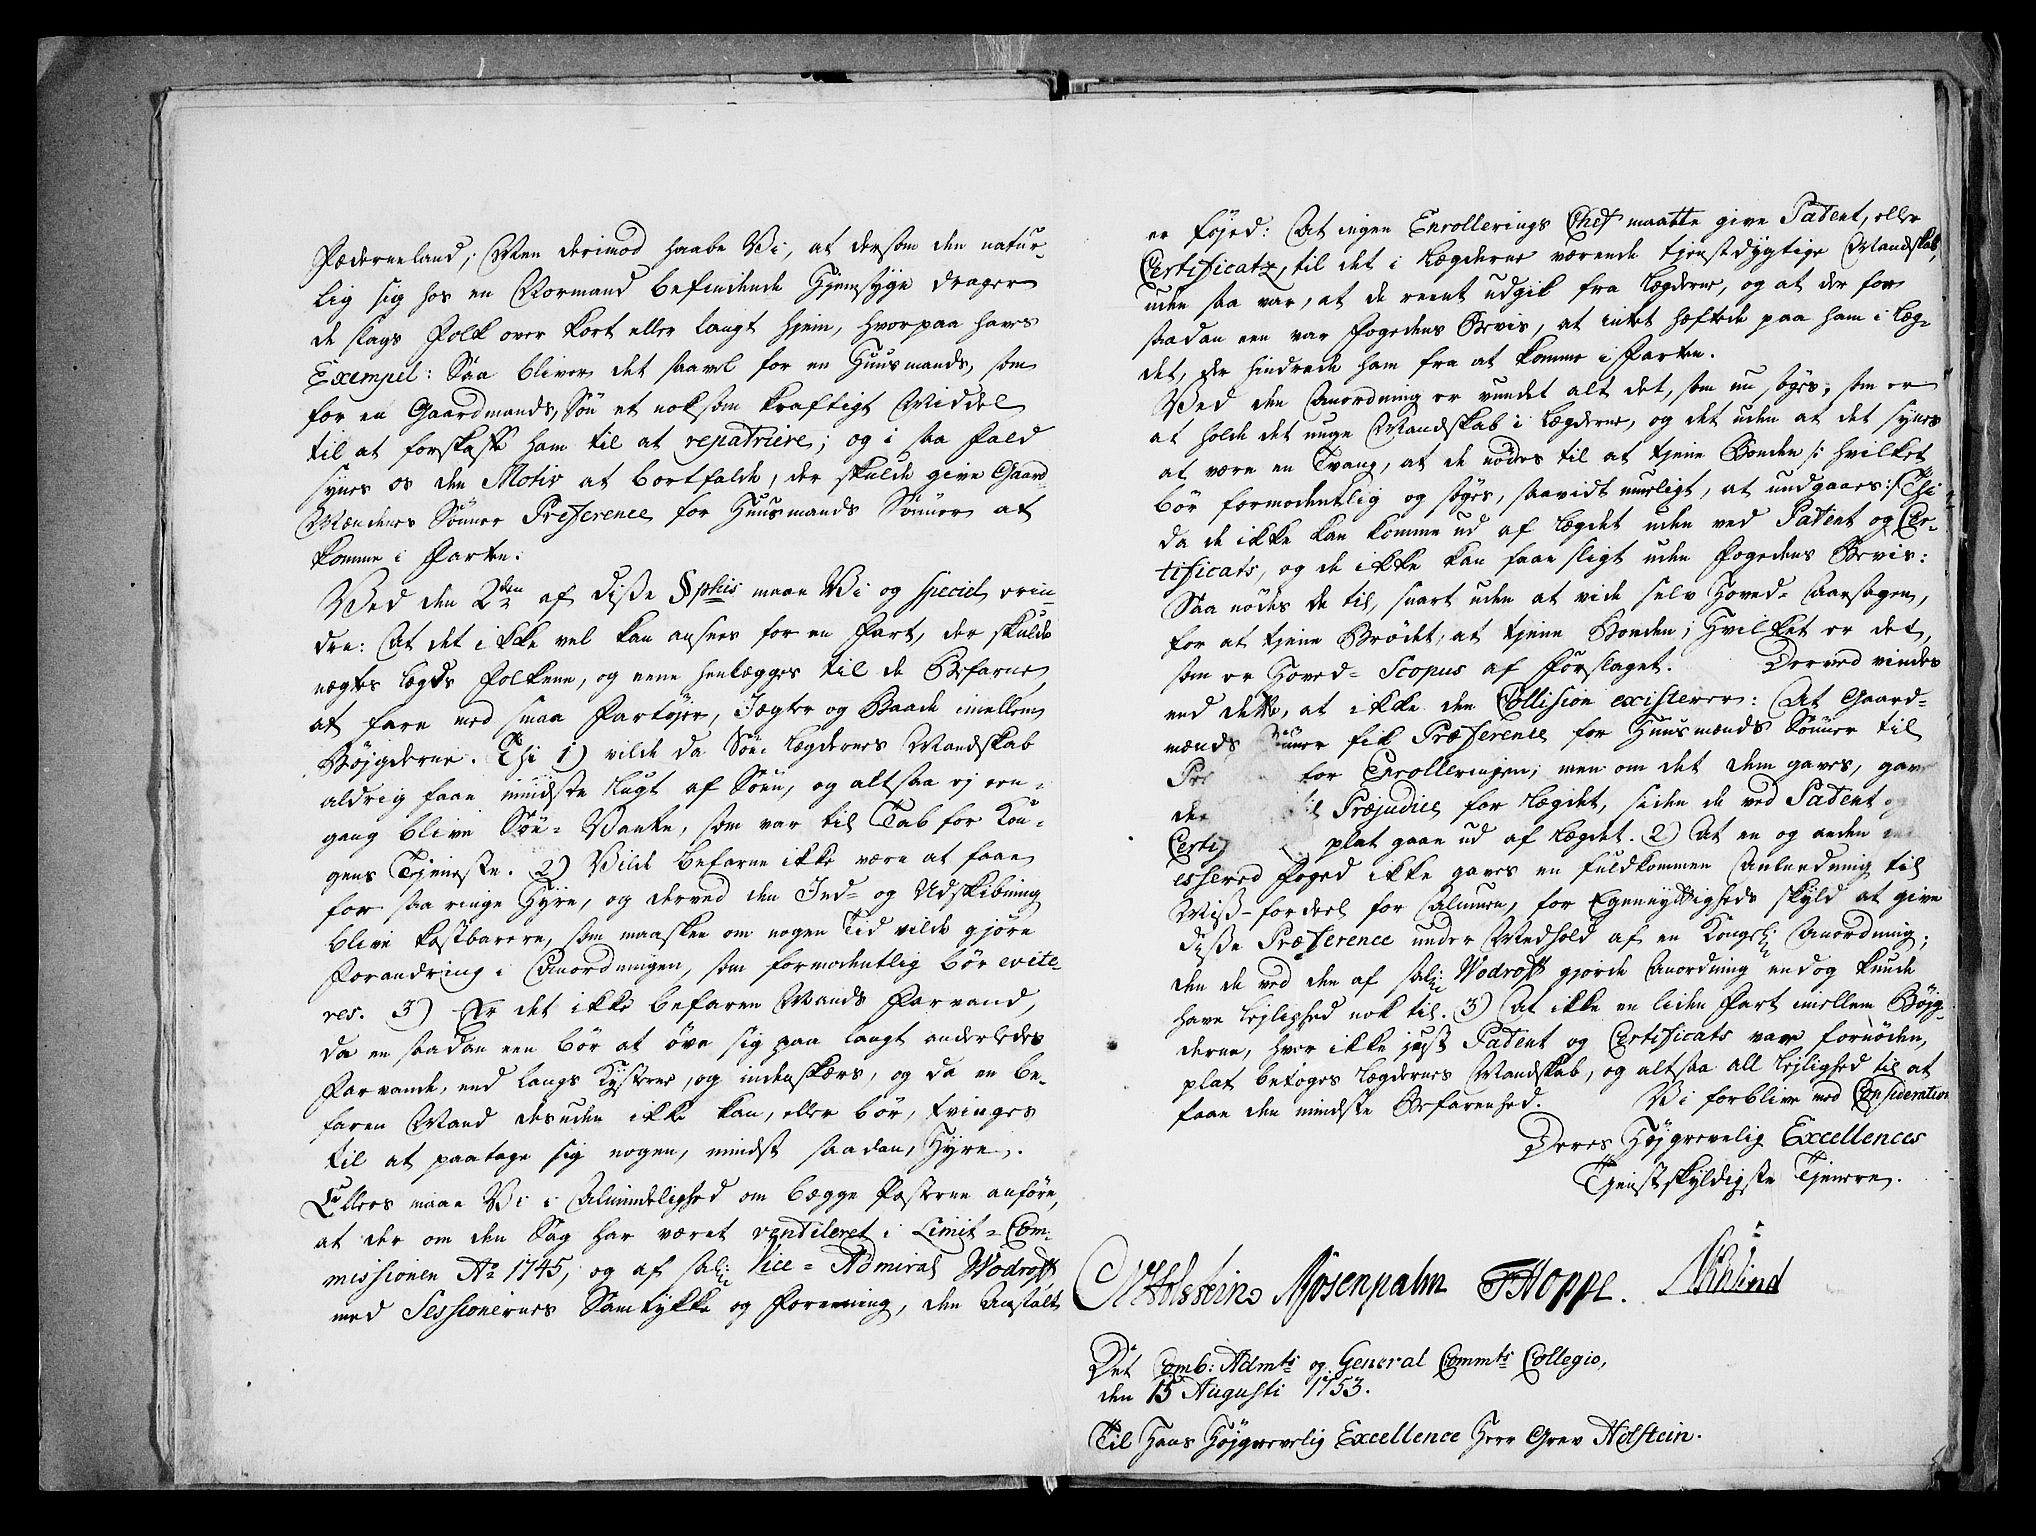 Fæderneland; Men derimod haabe Vi, at dersom den natur-
lig sig hos en Normand befindende Hjemsyge drager
de slags Folk over kort eller langt hjem, hvorpaa haves
Exempel: Saa bliver det saavel for en Huusmands, som
for en Gaardmands Søn et noksom kraftigt Middel
til at forskaffe ham til at repatriere; og i saa Fald
synes os den Motiv at bortfalde, der skulde give Gaard
Mændenes Sønner Preference for Huusmands Sønner at
komme i Farten.
Ved den 2den af disse §phis maae Vi og speciel erin-
dre: At det ikke vel kan ansees for en Fart, der skulde
nægtes Lægds Folkene, og eene henlægges til de Befarne,
at fare med smaa Fartøjer, Jægter og Baade imellem
Bøjgderne. Thi 1) vilde da Søe-Lægdernes Mandskab
aldrig faae mindste Lugt af Søen, og altsaa ej een-
gang blive Søe-Vante, som var til Tab for Kon-
gens Tjeneste. 2) Vilde befarne ikke være at faae
for saa ringe Hyre, og derved den Ind- og Udskibning
blive kostbarere, som maaskee om nogen Tid vilde gjøre
Forandring i Anordningen, som formodentlig bør evite-
res. 3) Er det ikke befaren Mands Farvand,
da en saadan een bør at øve sig paa langt anderledes
Farvande, end langs Kysterne, og indenskærs, og da en be-
faren Mand desuden ikke kan, eller bør, tvinges
til at paatage sig nogen, mindst saadan, Hyre.
Ellers maae Vi i Almindelighed om begge Posterne anføre,
at der om den Sag har været ventileret i Limit-Com-
missionen Ao 1745, og af sal: Vice-Admiral Wodroff
med Sessionernes Samtykke og Foreening, den Anstalt
er føjed: At ingen Enrollerings Chef maatte give Patent, eller
Certificatz, til det i Lægderne værende tjenstdygtige Mandskab,
uden saa var, at de reent udgik fra Lægderne, og at der for
saadan een var Fogedens Bevis, at intet hæftede paa ham i Læg-
det, der hindrede ham fra at komme i Farten.
Ved den Anordning er vundet alt det, som nu søges, som er
at holde det unge Mandskab i Lægderne, og det uden at det synes
at være en Tvang, at de nødes til at tjene Bonden /: hvilket
bør formodentlig og søges, saavidt mueligt, at undgaaes :/ Thi
da de ikke kan komme ud af Lægdet uden ved Patent og Cer-
tificats, og de ikke kan faae sligt uden Fogedens Bevis:
Saa nødes de til, snart uden at vide selv Hoved-Aarsagen,
for at tjene Brødet, at tjene Bonden; Hvilket er det,
som er Hoved-Scopus af Forslaget. Derved vindes
end dette, at ikke den Collision existerer: At Gaard-
mænds Sønner fik Præference for Huusmænds Sønner til
for Enrolleringen; men om det dem gaves, gav
de til Præjudice for Lægdet, siden de ved Patent og
Certi plat gaae ud af Lægdet. 2) At en og anden
essered Foged ikke gaves en fuldkommen Anledning til
Miss-fordeel for Almuen, for Egennyttigheds skyld at give
disse Præference under Medhold af en Kongel: Anordning;
den de ved den af sal: Wodroff gjorde Anordning endog kunde
have Lejlighed nok til. 3) At ikke en liden Fart imellem Bøjg-
derne, hvor ikke just Patent og Certificats var fornøden,
plat betoges Lægdernes Mandskab, og altsaa all Lejlighed til at
faae den mindste Befarenhed. Vi forblive med Consideration
Deres Højgrevelig Excellences
Tjenstskyldigste Tjenere.
Holstein Rosenpalm FHoppe.
Det Comb: Admts og General Commts Collegio,
den 15 Augusti 1753.
Til Hans Højgrevelig Excellence Herr Grev Holstein.